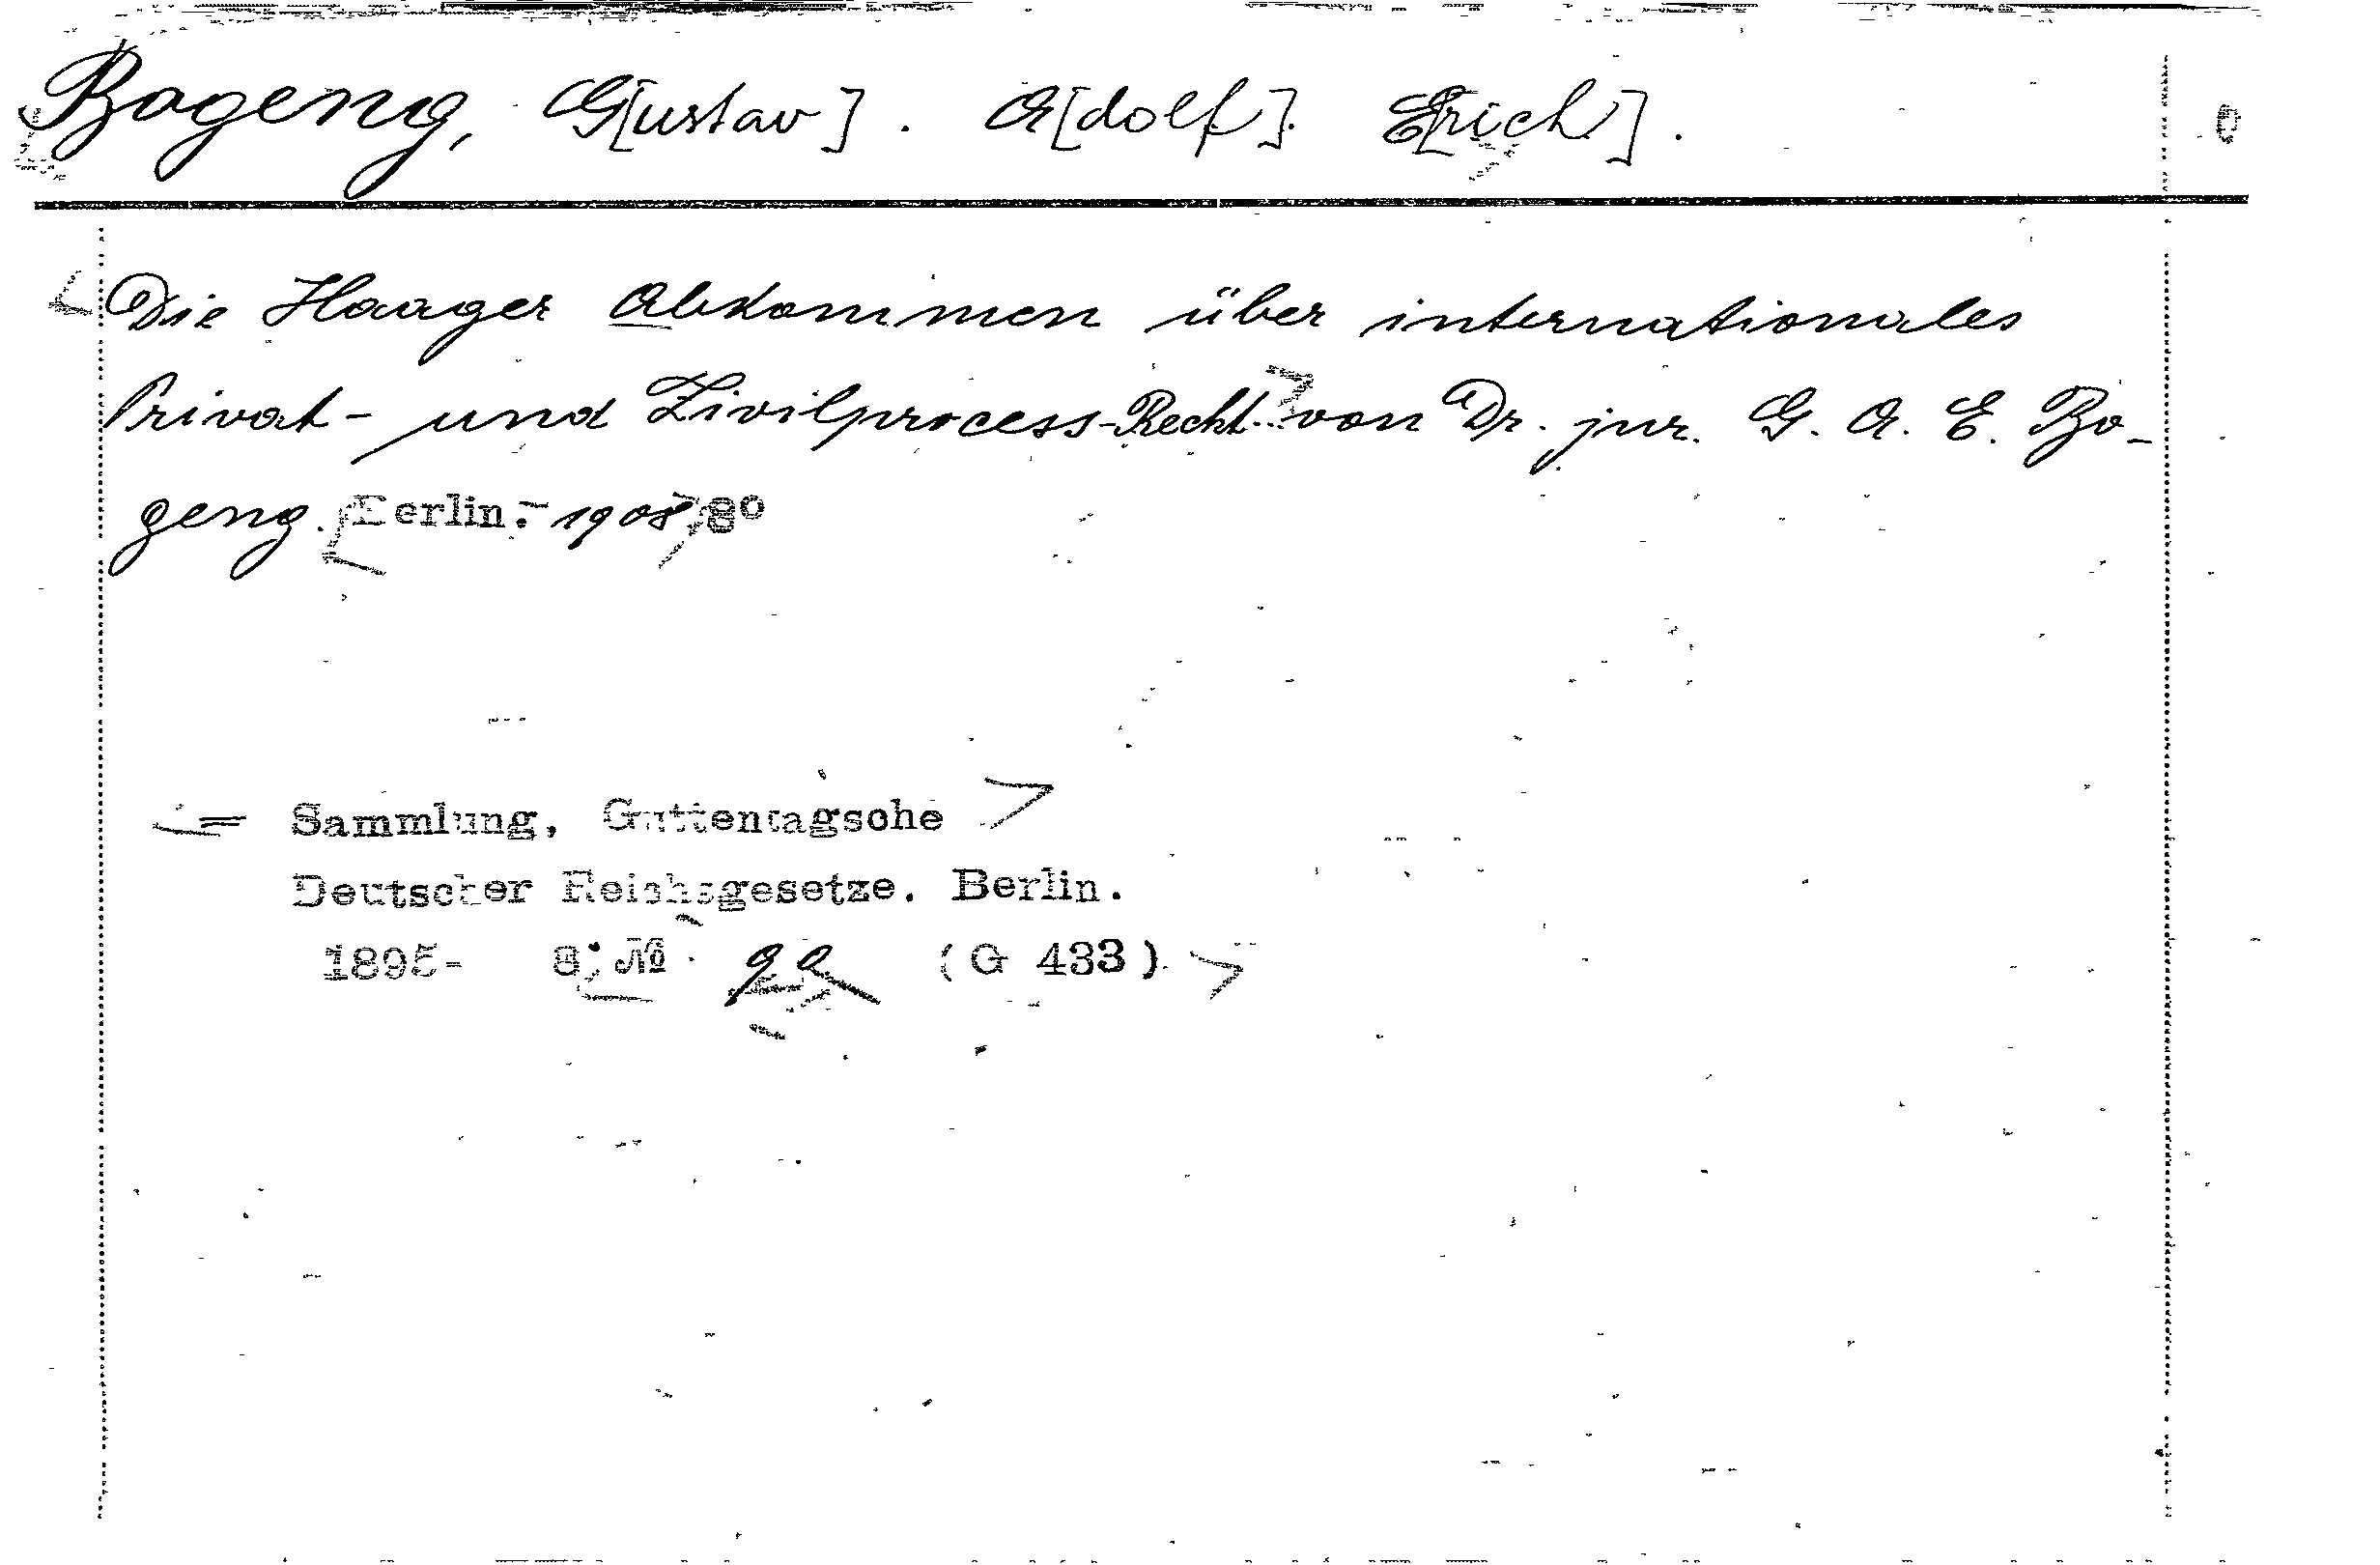 Bogeng, G[ustav]. A[dolf]. E[rich].
Die Haager Abkommen über internationales
Privat- und Zivilprocess-Recht von Dr. jur. G. A. E. Bo-
geng. Berlin. 1908 8°
= Sammlung, Guttentagsche
Deutscher Reichsgesetze. Berlin.
1895- 8. № (G 433)